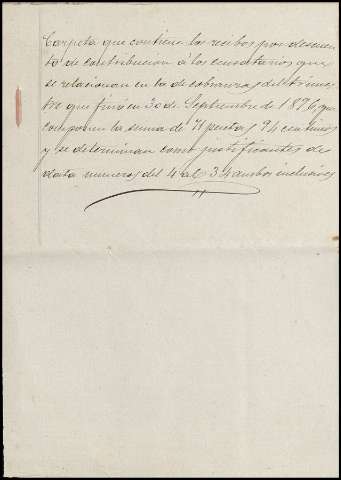 Carpeta que contiene los recibos por descuen
to de contribucion á los censatarios que
se relacionan en la de cobranzas del trimes
tre que finó en 30 de Septembre de 1876, que
componen la suma de 71 pesetas 94 centimos
y se determinan como justificantes de
data numeros del 4 al 34 ambos inclusives